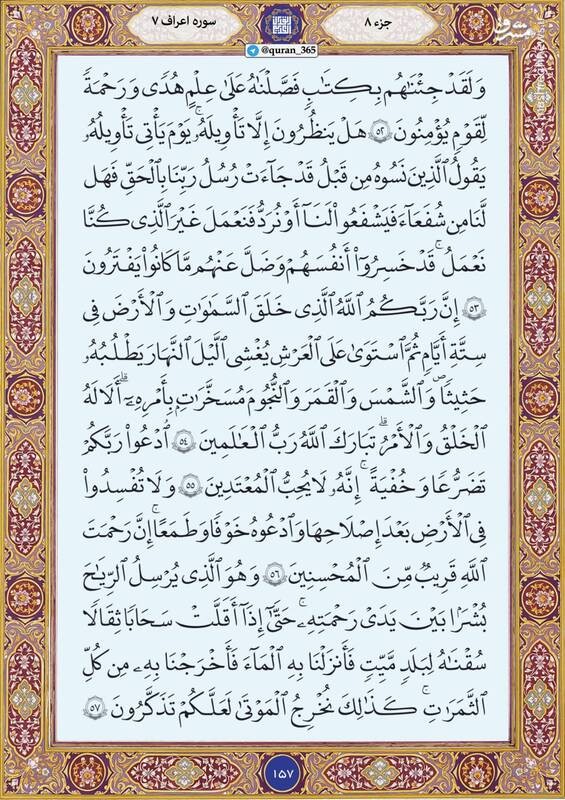 جزء ۸
سوره اعراف ۷
مشرق
mashreghnews.ir
@quran_365
وَلَقَدْ جِئْنَٰهُم بِكِتَٰبٍ فَصَّلْنَٰهُ عَلَىٰ عِلْمٍ هُدًى وَرَحْمَةً
لِّقَوْمٍ يُؤْمِنُونَ ۝٥٢ هَلْ يَنظُرُونَ إِلَّا تَأْوِيلَهُۥ ۚ يَوْمَ يَأْتِى تَأْوِيلُهُۥ
يَقُولُ ٱلَّذِينَ نَسُوهُ مِن قَبْلُ قَدْ جَآءَتْ رُسُلُ رَبِّنَا بِٱلْحَقِّ فَهَل
لَّنَا مِن شُفَعَآءَ فَيَشْفَعُوا۟ لَنَآ أَوْ نُرَدُّ فَنَعْمَلَ غَيْرَ ٱلَّذِى كُنَّا
نَعْمَلُ ۚ قَدْ خَسِرُوٓا۟ أَنفُسَهُمْ وَضَلَّ عَنْهُم مَّا كَانُوا۟ يَفْتَرُونَ
۝٥٣ إِنَّ رَبَّكُمُ ٱللَّهُ ٱلَّذِى خَلَقَ ٱلسَّمَٰوَٰتِ وَٱلْأَرْضَ فِى
سِتَّةِ أَيَّامٍ ثُمَّ ٱسْتَوَىٰ عَلَى ٱلْعَرْشِ يُغْشِى ٱلَّيْلَ ٱلنَّهَارَ يَطْلُبُهُۥ
حَثِيثًا وَٱلشَّمْسَ وَٱلْقَمَرَ وَٱلنُّجُومَ مُسَخَّرَٰتٍۭ بِأَمْرِهِۦٓ ۗ أَلَا لَهُ
ٱلْخَلْقُ وَٱلْأَمْرُ ۗ تَبَارَكَ ٱللَّهُ رَبُّ ٱلْعَٰلَمِينَ ۝٥٤ ٱدْعُوا۟ رَبَّكُمْ
تَضَرُّعًا وَخُفْيَةً ۚ إِنَّهُۥ لَا يُحِبُّ ٱلْمُعْتَدِينَ ۝٥٥ وَلَا تُفْسِدُوا۟
فِى ٱلْأَرْضِ بَعْدَ إِصْلَٰحِهَا وَٱدْعُوهُ خَوْفًا وَطَمَعًا ۚ إِنَّ رَحْمَتَ
ٱللَّهِ قَرِيبٌ مِّنَ ٱلْمُحْسِنِينَ ۝٥٦ وَهُوَ ٱلَّذِى يُرْسِلُ ٱلرِّيَٰحَ
بُشْرًۢا بَيْنَ يَدَىْ رَحْمَتِهِۦ ۖ حَتَّىٰٓ إِذَآ أَقَلَّتْ سَحَابًا ثِقَالًا
سُقْنَٰهُ لِبَلَدٍ مَّيِّتٍ فَأَنزَلْنَا بِهِ ٱلْمَآءَ فَأَخْرَجْنَا بِهِۦ مِن كُلِّ
ٱلثَّمَرَٰتِ ۚ كَذَٰلِكَ نُخْرِجُ ٱلْمَوْتَىٰ لَعَلَّكُمْ تَذَكَّرُونَ ۝٥٧
۱۵۷